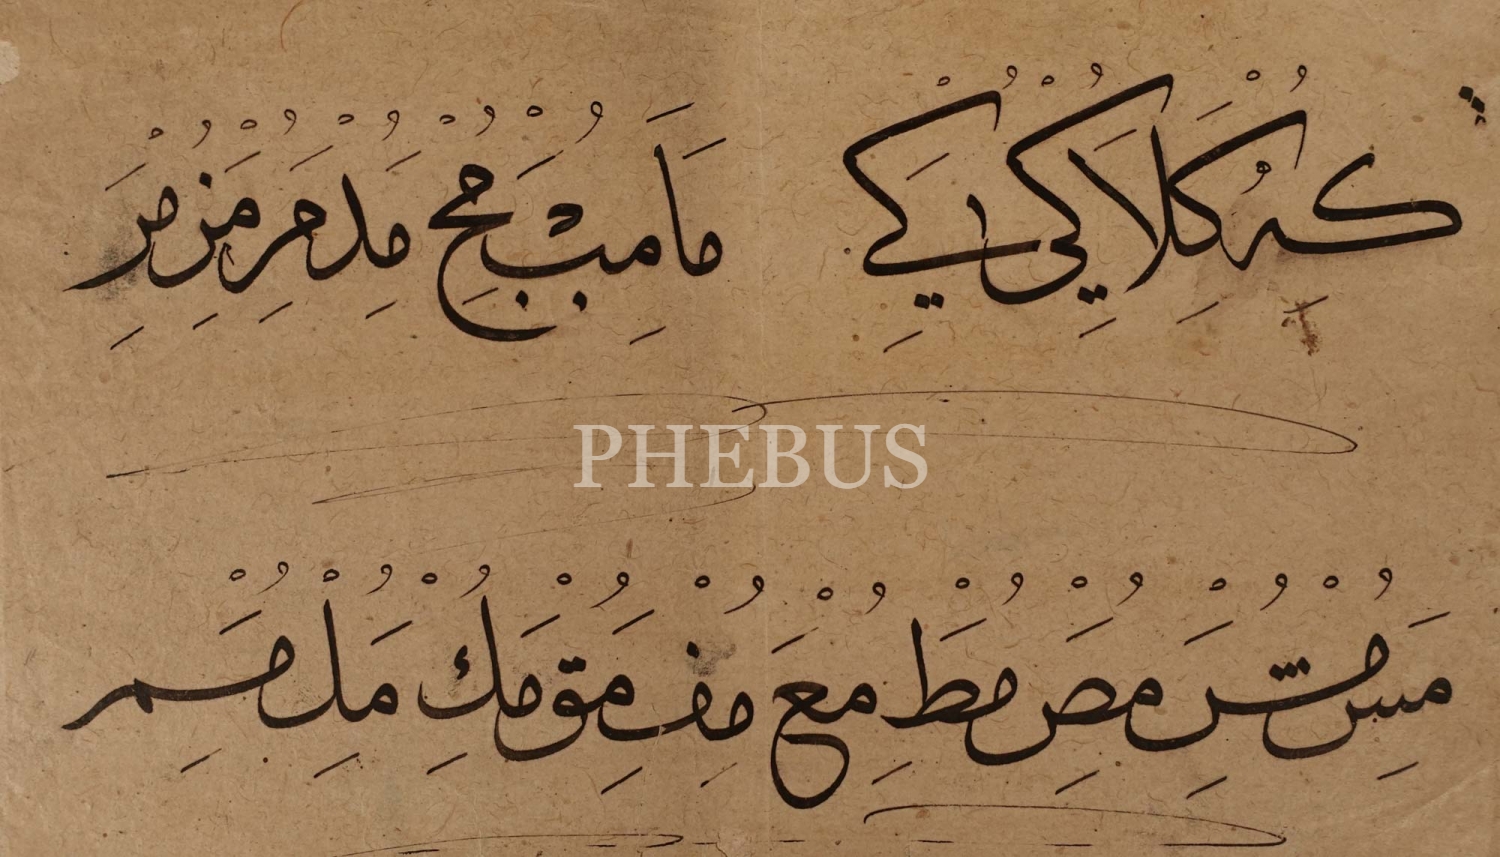 كه كلا كى كے ما مب مح مد مر مز مر
PHEBUS
مس مش مص مط مع مف مق مك مل مم